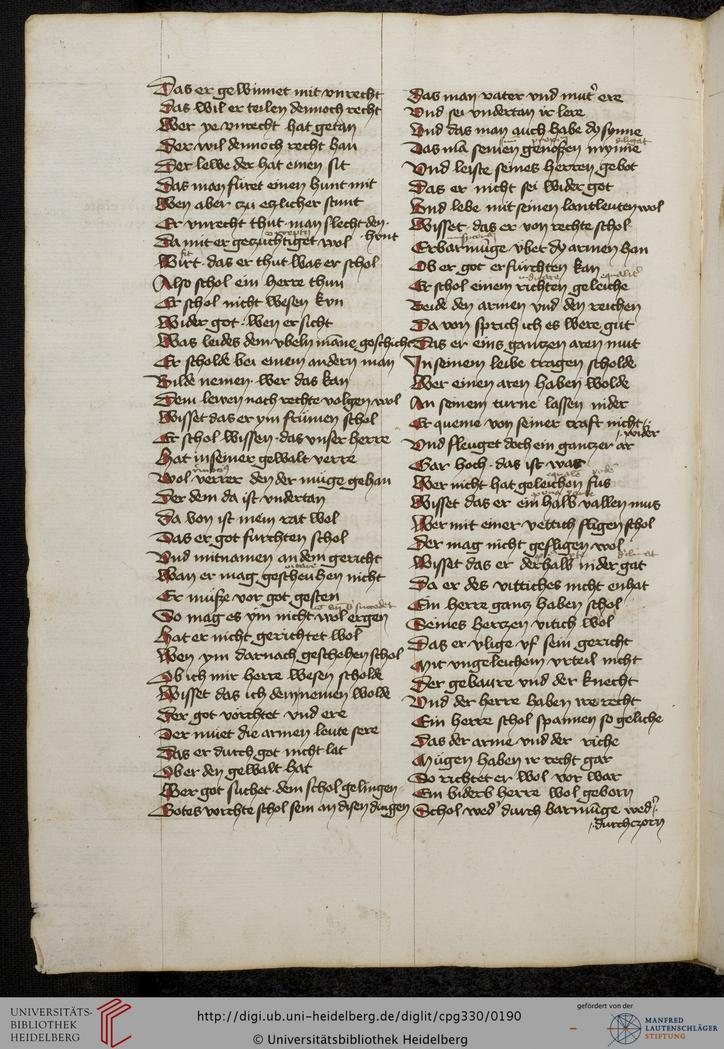 Das er gewinnet mit vnrecht
Das wil er teilen dennoch recht
Wer ye vnrecht hat getan
Der wil dennoch recht han
Der lewe der hat einen sit
Das man füret einen hunt mit
Wen aber zu etzlicher stunt
Er vnrecht thut man slecht den hunt
Da mit er gezuchtiget wol
Wirt das er thut was er schol
Also schol ein herre thun
Er schol nicht wesen kun
Wider got wen er sicht
Was leides dem vbeln manne geschicht
Er scholde bei einem andern man
Bilde nemen wer das kan
Dem lewen nach rechte volgen wol
Wisset das er ym frümen schol
Er schol wissen das vnser herre
Hat in seiner gewalt verre
Wol verrer den der müge gehan
Der dem da ist vndertan
Da von ist mein rat wol
Das er got furchten schol
Vnd mitnamen an dem gericht
Wan er mag gescheuhen nicht
Er müße vor got gesten
So mag es ym nicht wol ergen
Hat er nicht gerichtet wol
Wen ym darnach geschehen schol
Ob ich mir herre wesen scholde
Wisset das ich den nemen wolde
Der got vorchtet vnd ere
Der muet die armen leute sere
Das er durch got nicht lat
Ob er den gewalt hat
Wer got suchet dem schol gelingen
Gotes vorchte schol sein an disen dingen
Das man vater vnd mut' ere
Vnd sei vndertan ir lere
Vnd das man auch habe dy synne
Das mā seinen genoßen mynne
Vnd leiste seines herren gebot
Das er nicht sei wider got
Vnd lebe mit seinen lantleuten wol
Wisset das er von rechte schol
Erbarmūge vber dy armen han
Ob er got erfurchten kan
Er schol einem richten geleiche
Beide den armen vnd den reichen
Da von sprich ich es were gut
Das er eins gantzen aren mut
In seinem leibe tragen scholde
Wer einen aren haben wolde
An seinem turne lassen nider
Er queme von seiner craft nicht wider
Vnd fleuget doch ein gantzer ar
Gar hoch das ist war
Wer nicht hat geleichen fus
Wisset das er ein halb vallen mus
Wer mit einer vettich fligen schol
Der mag nicht gefligen wol
Wisset das er derhalb nider gat
Da er des vittiches nicht enhat
Ein herre gantz haben schol
Seines hertzen vitich wol
Das er vlige vf sein gericht
Mit vngeleichem vrteil nicht
Der gebaure vnd der knecht
Vnd der herre haben ire recht
Ein herre schol spannen so geliche
Das der arme vnd der riche
Mügen haben ir recht gar
So richtet er wol vor war
Ein biderb herre wol geborn
Schol wed' durch barmūge wed'
durch czorn
UNIVERSITÄTS-
BIBLIOTHEK
HEIDELBERG
http://digi.ub.uni-heidelberg.de/diglit/cpg330/0190
© Universitätsbibliothek Heidelberg
gefördert von der
MANFRED
LAUTENSCHLÄGER
STIFTUNG